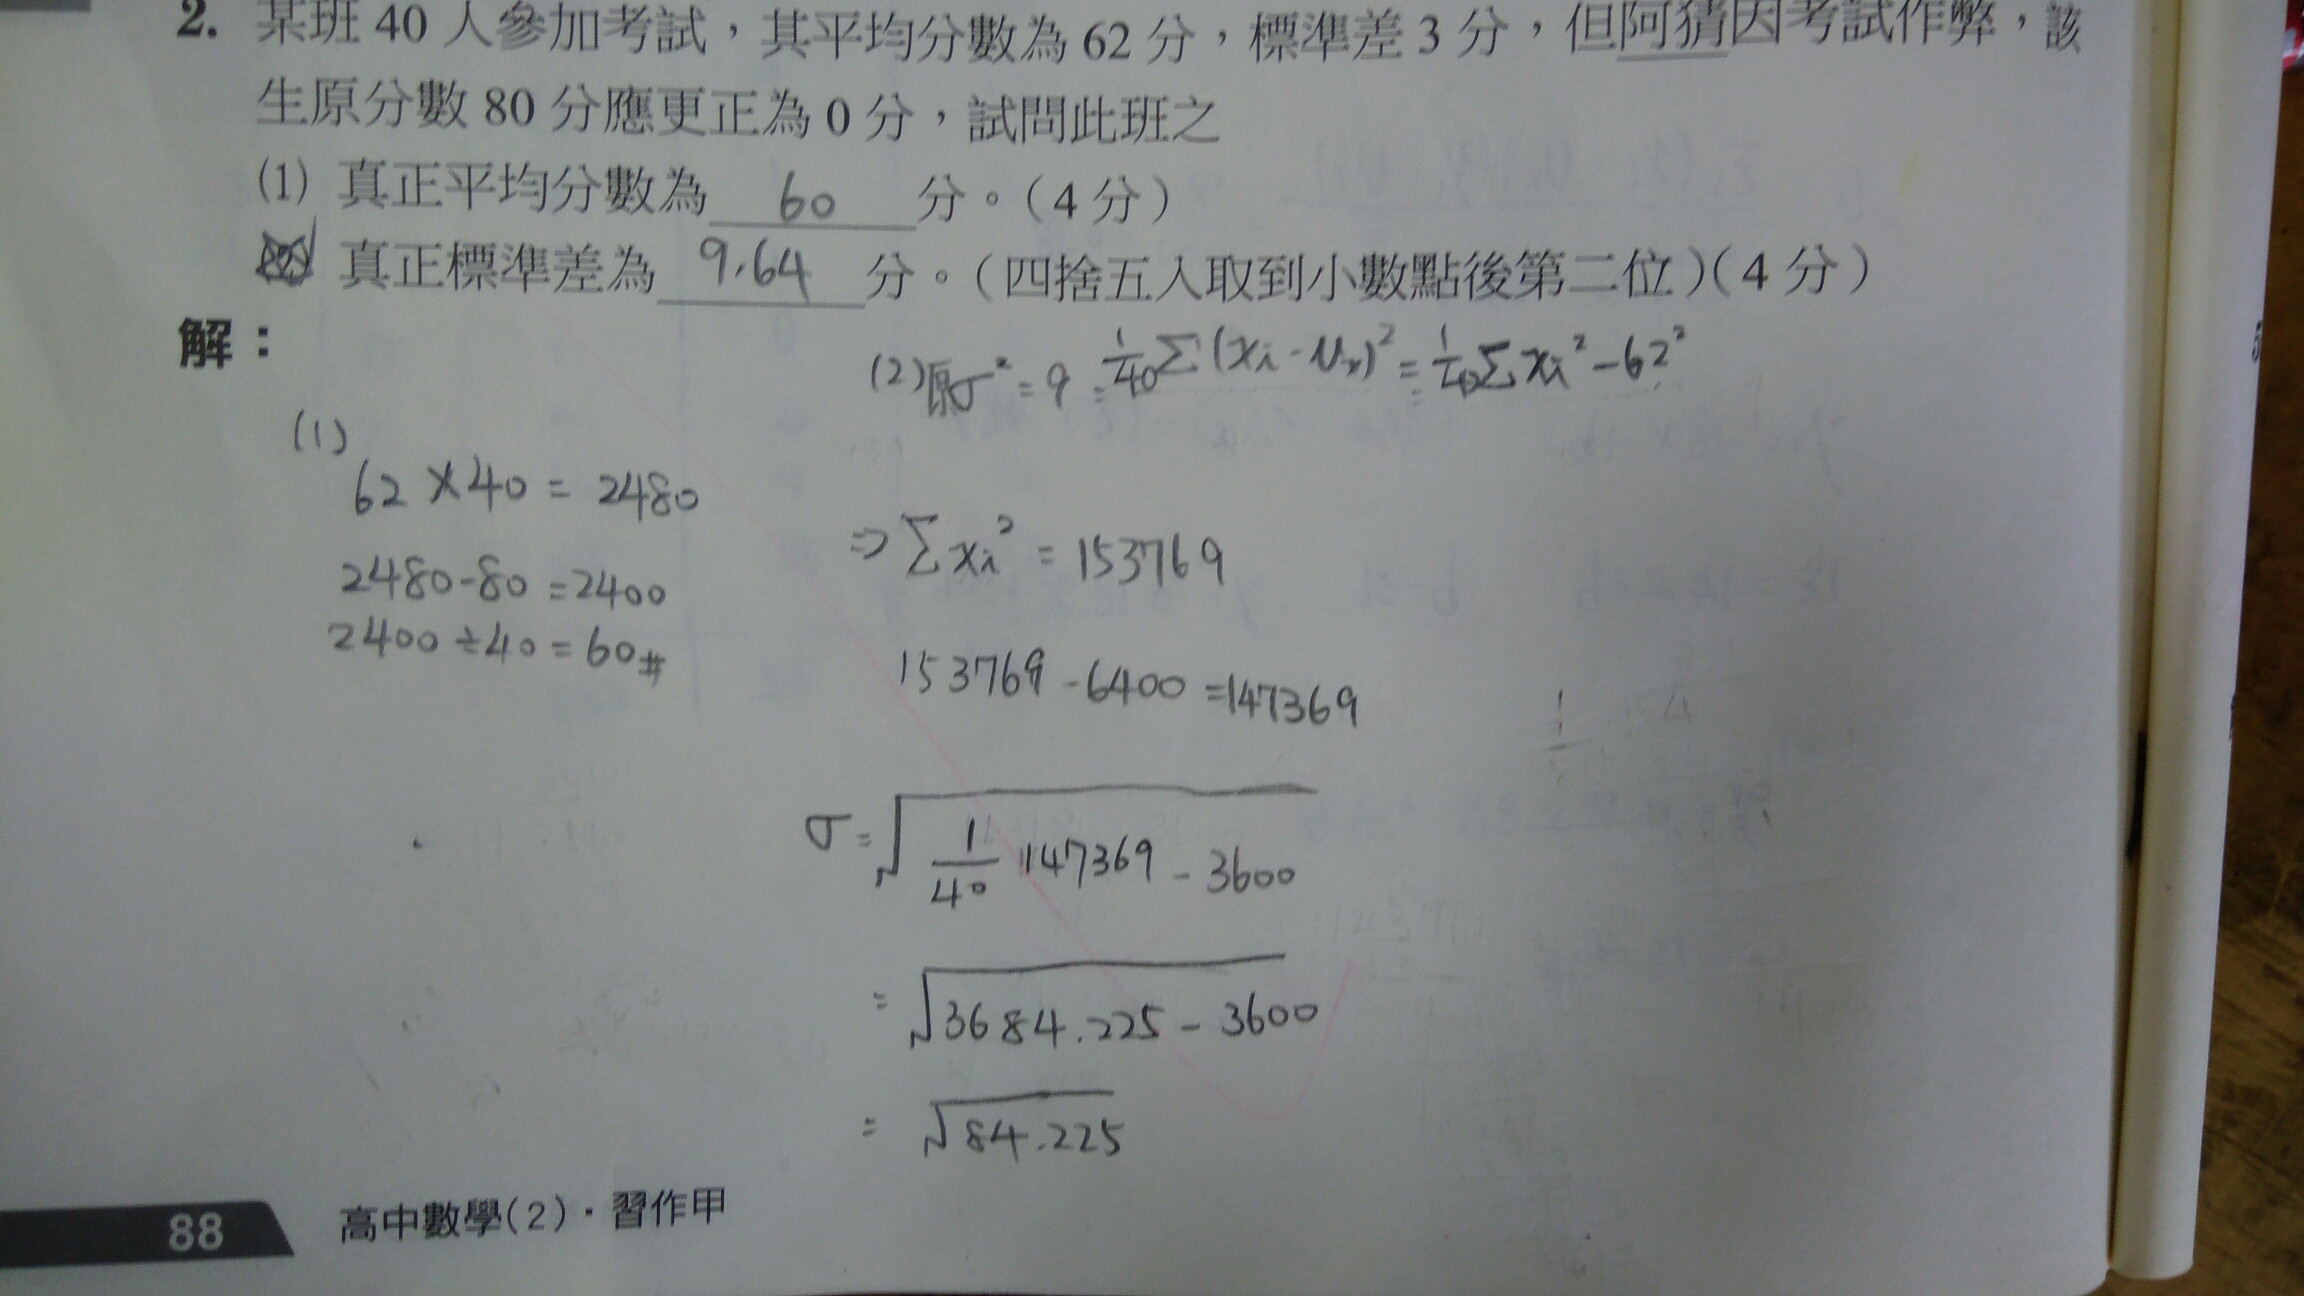 2. 某班 40 人參加考試，其平均分數為 62 分，標準差 3 分，但阿猜因考試作弊，該
生原分數 80 分應更正為 0 分，試問此班之
(1) 真正平均分數為 60 分。(4 分)
真正標準差為 9.64 分。(四捨五入取到小數點後第二位)(4 分)
解：
(1)
62 × 40 = 2480
2480-80 = 2400
2400 ÷ 40 = 60 #
(2) 原σ² = 9 = 1/40 Σ (xi - μx)² = 1/40 Σ xi² - 62²
⇒ Σ xi² = 153769
153769 - 6400 = 147369
σ = √(1/40 147369 - 3600)
= √(3684.225 - 3600)
= √84.225
88 高中數學(2)．習作甲